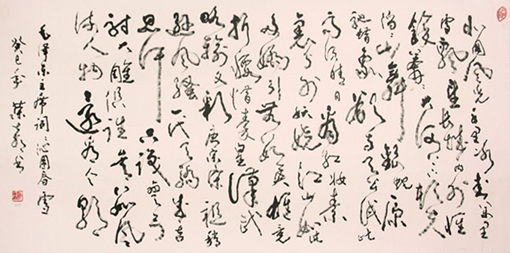 北国风光千里冰封万里
雪飘望长城内外惟
馀莽莽大河上下顿失
滔滔山舞银蛇原
驰蜡象欲与天公试比
高须晴日看红妆素
裹分外妖娆江山如此
多娇引无数英雄竞
折腰惜秦皇汉武
略输文彩唐宗宋祖稍
逊风骚一代天骄成吉
思汗只识弯弓
射大雕俱往矣数风
流人物还看今朝
毛泽东主席词沁园春雪
癸巳年